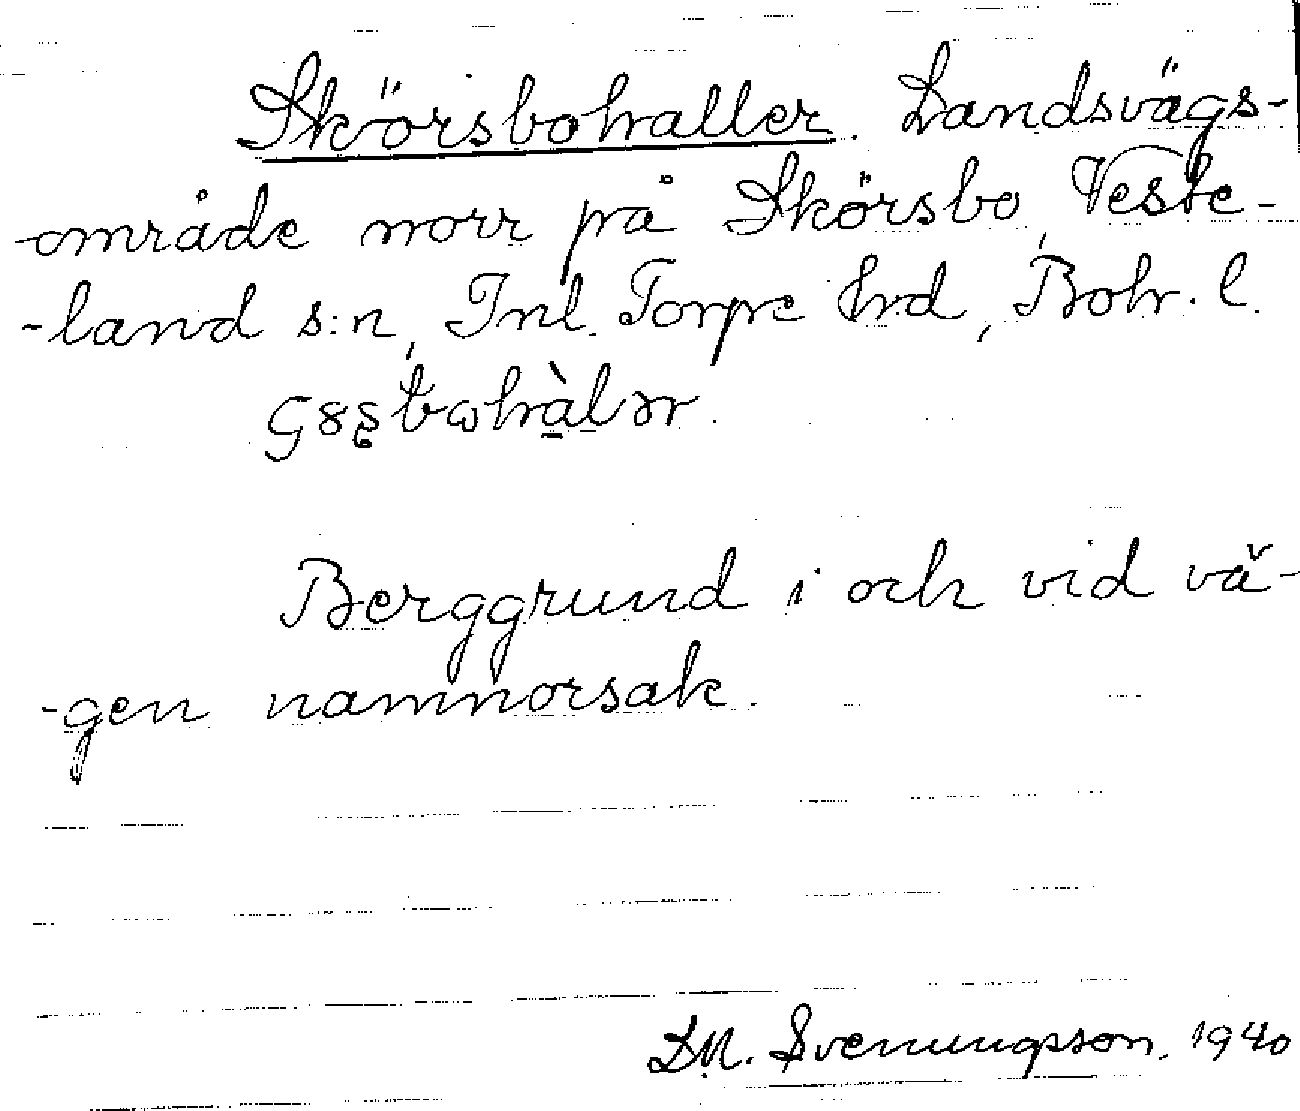 Skörsbohaller. Landsvägs-
-område norr på Skörsbo, Veste-
-land s:n, Inl. Torpe hrd, Boh. l.
Berggrund i och vid vä-
-gen namnorsak.
D.N. Svenungsson. 1940